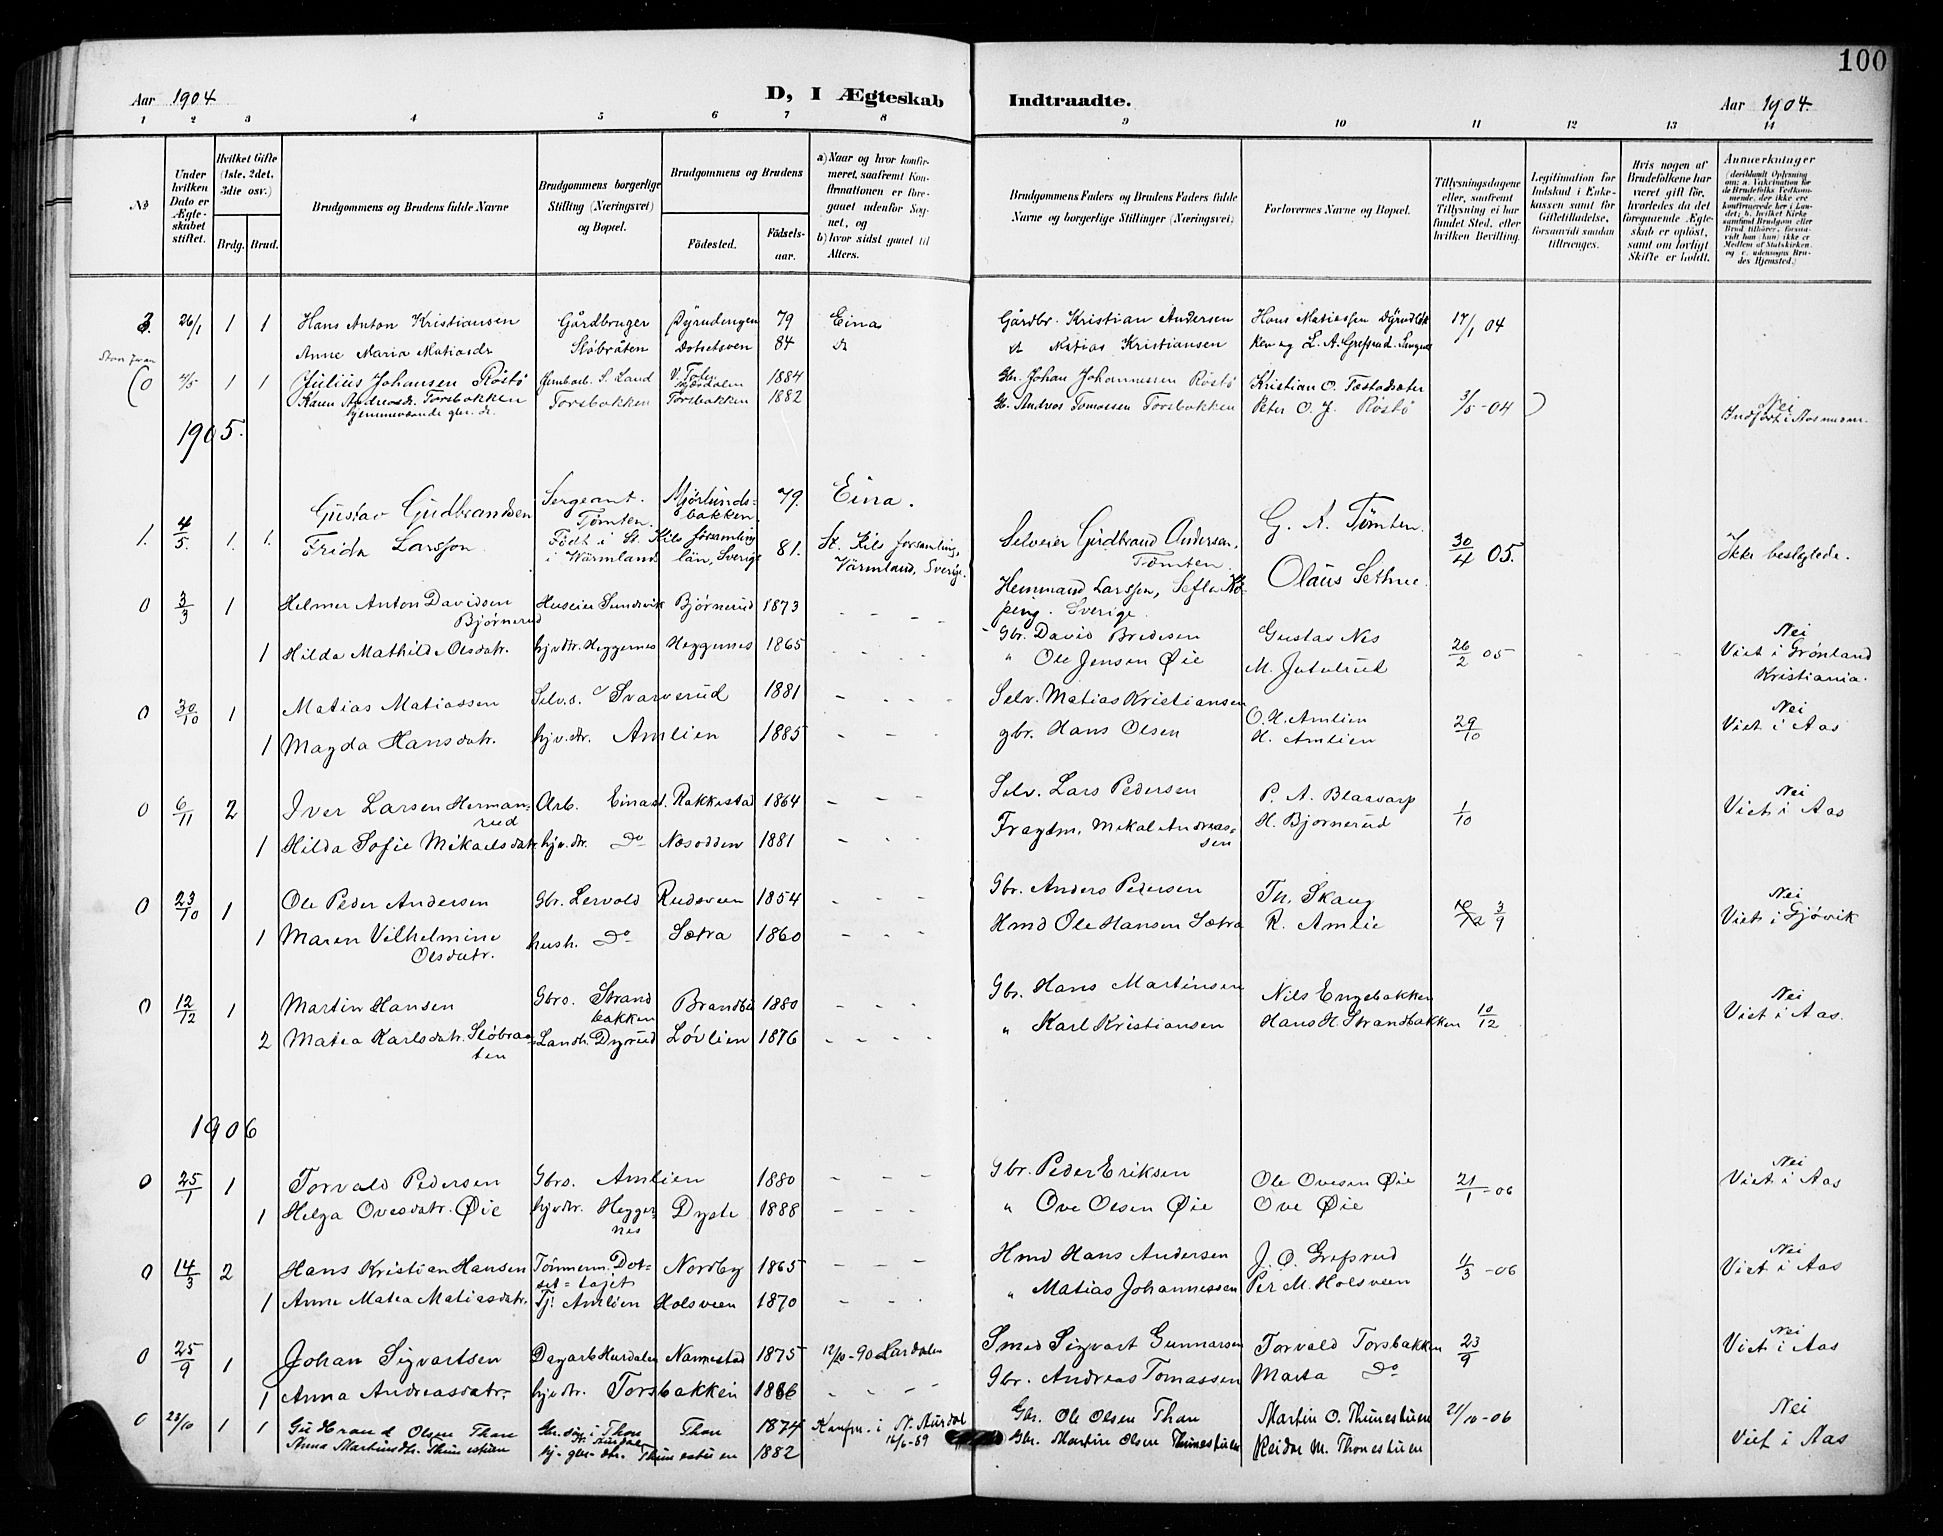 100
Aar 1904
D, I Ægteskab
Indtraadte.
Aar 1904.
1 2 3 4 5 6 7 8 9 10 11 12 13 14
No
Under hvilken Dato er Ægteskabet stiftet.
Hvilket Gifte (1ste, 2det, 3die osv.)
Brdg. Brud.
Brudgommens og Brudens fulde Navne
Brudgommens borgerlige Stilling (Næringsvei) og Bopæl.
Brudgommens og Brudens
Fødested.
Fødselsaar.
a) Naar og hvor konfirmeret, saafremt Konfirmationen er foregaaet udenfor Sognet, og
b) hvor sidst gaaet til Alters.
Brudgommens Faders og Brudens Faders fulde Navne og borgerlige Stillinger (Næringsvei)
Forlovernes Navne og Bopæl.
Tillysningsdagene eller, saafremt Tillysning ei har fundet Sted, efter hvilken Bevilling.
Legitimation for Indskud i Enkekassen samt for Giftetilladelse, forsaavidt saadan tiltrænges.
Hvis nogen af Brudefolkene har været gift før, hvorledes da det foregaaende Ægteskab er opløst, samt om lovligt Skifte er holdt.
Anmerkninger
3. 26/1 1 1 Hans Anton Kristiansen Gårdbruger Dyrudengen 79 Eina Gårdbr. Kristian Andersen Hans Matiassen 17/1 04
Anne Maria Matiasdr Støbråten Dotsetsven 84 Matias Kristiansen
(0 4/5 1 1 Julius Johansen Røstø S. Land V. Toten 1884 Gbr. Johan Johannessen Røstø Kristian O.
Karen Andreasdr. Torsbakken Torsbakken Torsbakken 1882 Andreas Tomassen Torsbakken Peter O. J. Røstø 3/5-04 ) Nei
hjemmeværende gbr. dr. Indført i Aas
1905.
Gustav Gudbrandsen Sergeant. Tømten. Mjørlundsbakken. 79. Eina.
1. 4/5. 1. 1. Frida Larsson. Født i St. Kils församling i Wärmlands län, Sverige 81. St. Kils forsamling, Värmland, Sverige.
Selveier Gudbrand Andersen, Tømten. G. A. Tømten. 30/4 05. Ikke beslegtede.
Hemmand Larsson, Sefle Köping. Sverige. Olaus Sethne.
0 3/3 1 Helmer Anton Davidsen Bjørnerud Huseier Sundvik Bjørnerud 1873 - - - Gbr. David Bredesen Gustav Nes Nei
1 Hilda Mathilde Olsdatr. hjv.dtr. Heggernes Heggernes 1865 - - - " Ole Jensen Øie M. Jutulrud 26/2 05 Viet i Grønland Kristiania.
0 30/10 1 Matias Matiassen Selv.s. Svarverud 1881 - - - Selv. Matias Kristiansen O. H. Amlien Nei
1 Magda Hansdatr. hjv.dtr. Amlien 1885 - - - gbr. Hans Olsen H. Amlien 29/10 Viet i Aas
0 6/11 2 Iver Larsen Hermanrud Arb. Einast. Rakkestad 1864 - - - Selv. Lars Pedersen P. A. Blaavarp 1/10 Nei Viet i Aas
1 Hilda Sofie Mikaelsdatr hjv.dtr. Do Næsodden 1881 - - - Fragdm. Mikal Andreassen H. Bjørnerud
0 23/10 1 Ole Peder Andersen Gbr. Lervold Rudsveen 1854 - - - Gbr. Anders Pedersen Th. Skaug Nei
1 Maren Vilhelmine Olsdatr. hush. Do Sætra 1860 - - - Hmd Ole Hansen Sætra R. Amlie 3/9 Viet i Gjøvik
0 12/12 1 Martin Hansen Gbrs. Strandbakken Brandbu 1880 - - - Gbr. Hans Martinsen Nils Engebakken Nei
2 Matea Karlsdatr. Støbraaten Landh. Dyrud Løvlien 1876 - - - - " Karl Kristiansen Hans H. Strandbakken 10/12 Viet i Aas.
1906
0 25/1 1 Torvald Pedersen Gbrs. Amlien 1880 - - - Gbr. Peder Eriksen Ole Ovesen Øie 21/1-06 Nei Viet i Aas
1 Helga Ovesdatr. Øie hjv.dtr. Heggernes Dyste 1888 - - - " Ove Olsen Øie Ove Øie
0 14/3 2 Hans Kristian Hansen Tømmerm. Dotset-løjet Nordby 1865 - - - Hmd Hans Andersen J. O. Grefsrud 11/3-06 Nei Viet i Aas
1 Anne Matea Matiasdatr. Tj. Amlien Holsveen 1870 - - - " Matias Johannessen Per M. Holsveen
0 25/9 1 Johan Sigvartsen Dagarb. Hurdalen Nannestad 1875 12/10-90 Smed Sigvart Gunnarsen Torvald Torsbakken 23/9 Nei Viet i Aas
1 Anna Andreasdatr. hjv.dtr. Torsbakken 1886 - - - Gbr. Andreas Tomassen Marta Do
0 28/10 1 1 Guttrand Olsen Thon Gbr. søn i Thon Thon 1874 Konfm. i N. Aurdal Gbr. Ole Olsen Thon Martin O. Thunestuen 21/10-06 Nei
Anna Martinsdtr. Thunestuen hj. gbr. dtr. Thunestuen 1882 16/6-89 Gbr. Martin Olsen Thunestuen Reidar M. Thonestuen Viet i Aas